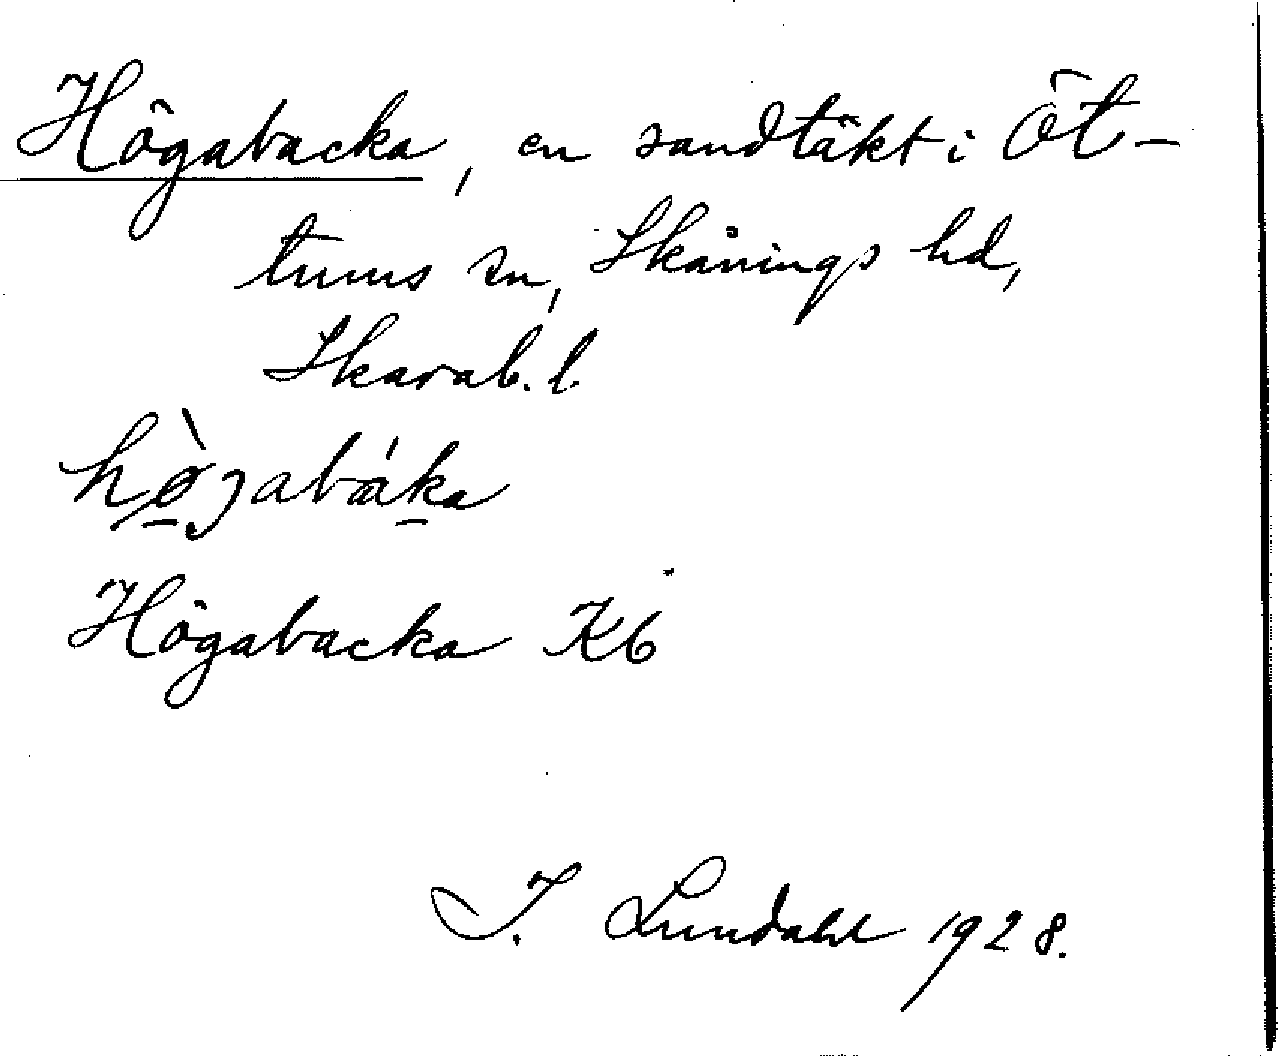 Högabacka, en sandtäkt i Öt-
tums sn, Skånings hd,
Skarab. l.
hø̀gabáka
Högabacka Kb
I. Lundahl 1928.